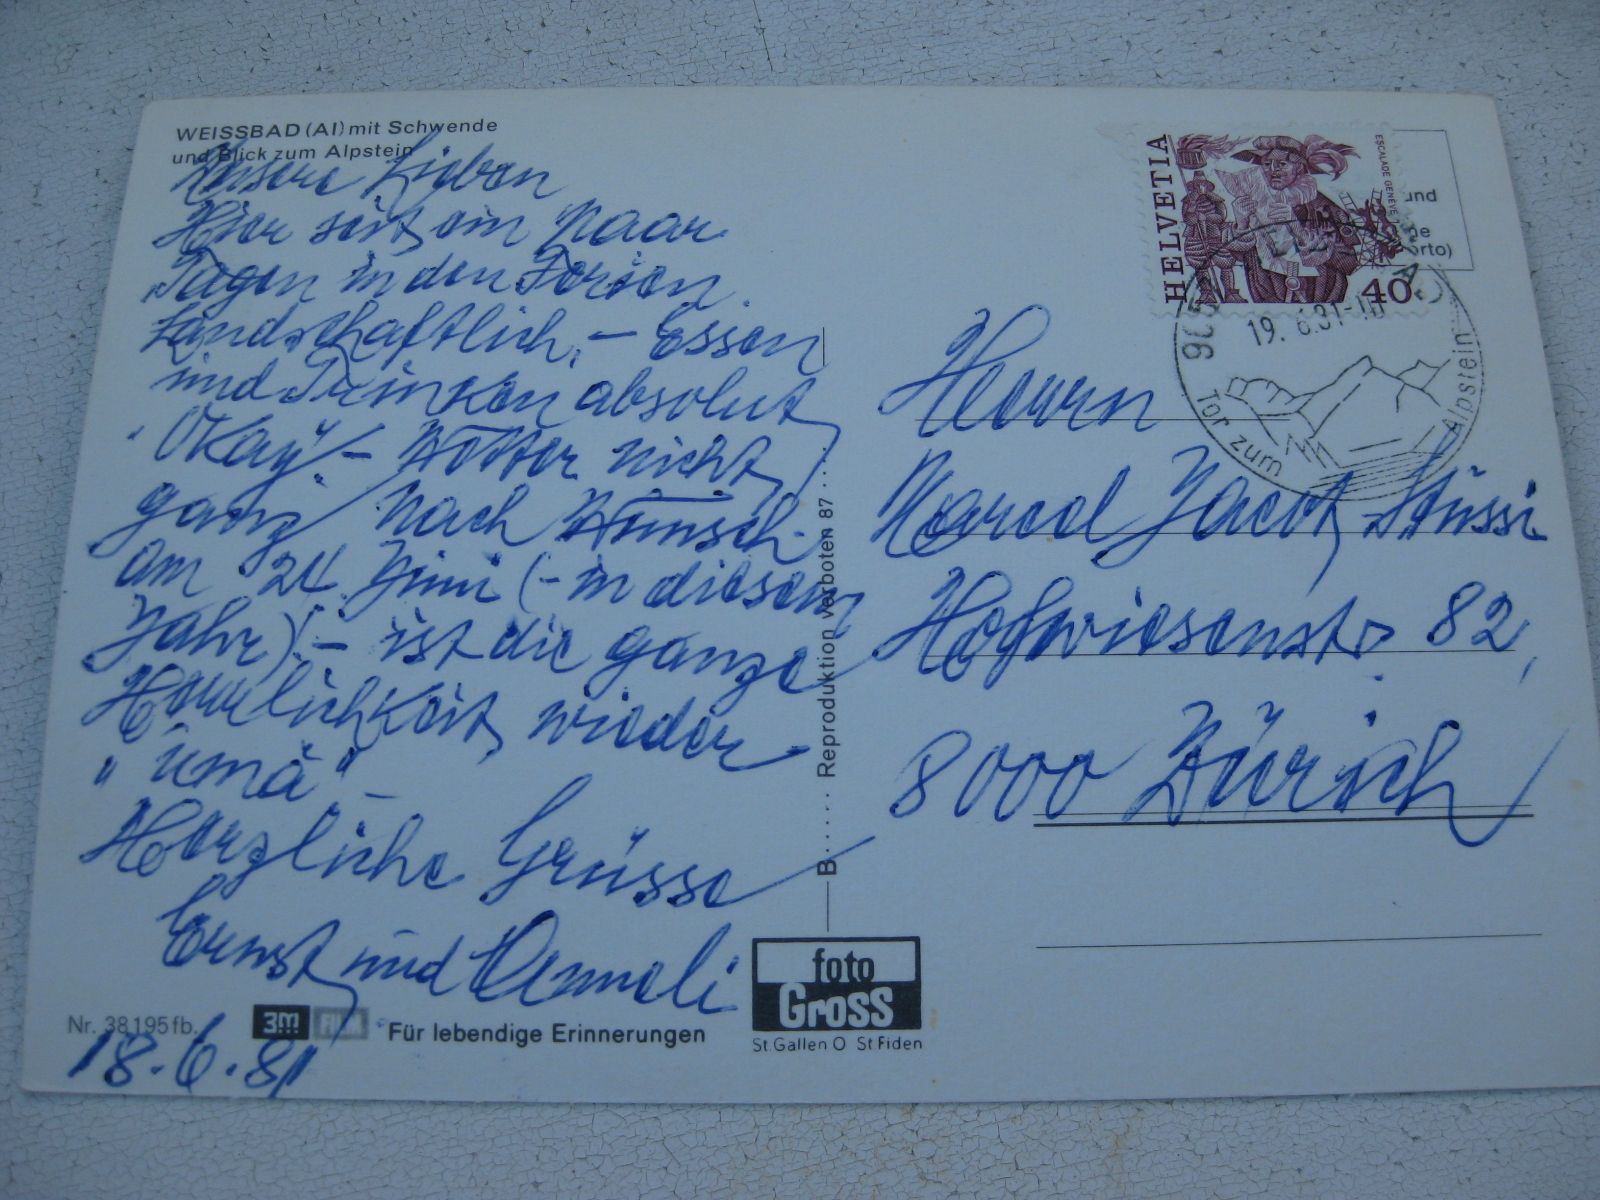 WEISSBAD (AI) mit Schwende
und Blick zum Alpstein
Unsere Lieben
Hier seit ein Paar
Tagen in den Ferien.
Landschaftlich, – Essen
und Trinken absolut
"Okay" – Wetter nicht
ganz nach Wunsch.
Am 24 Juni (– in diesem
Jahr)! – ist die ganze
Herrlichkeit wieder
"umä" –
Herzliche Grüsse
Ernst und Anneli
18.6.81
Nr. 38195 fb.
3M FILM Für lebendige Erinnerungen
foto
Gross
St.Gallen O St Fiden
B..... Reproduktion verboten 87 ....
HELVETIA
ESCALADE GENÈVE
40
und
de
orto)
905
19. 6.81-1
Tor zum Alpstein
Herrn
Marcel Jacot-Stüssi
Hofwiesenstr. 82,
8000 Zürich